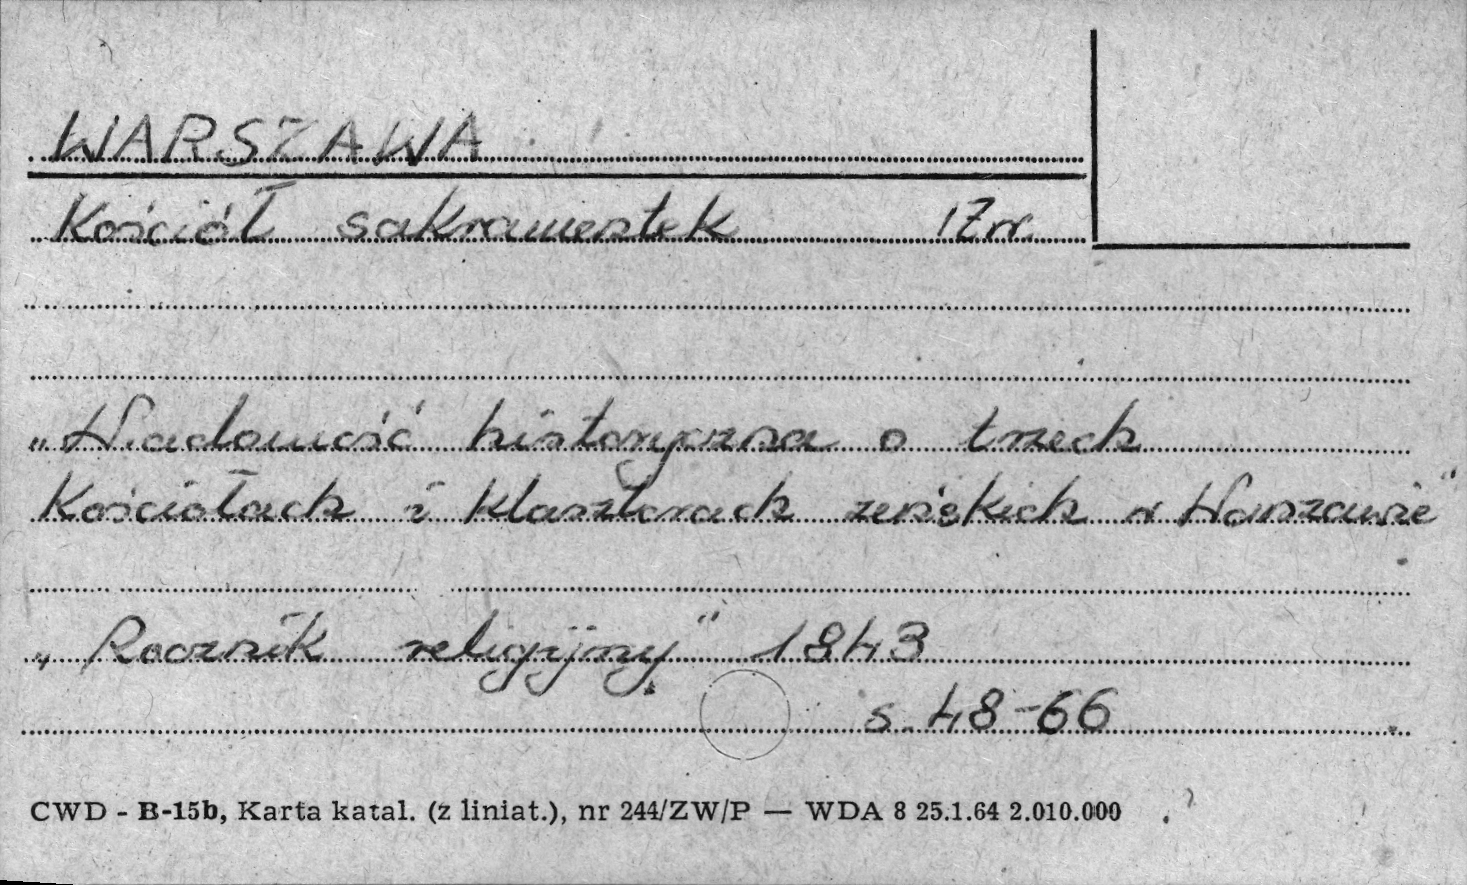 WARSZAWA
Kościół sakramentek 17 w.
„Wiadomość historyczna o trzech
Kościołach i klasztorach żeńskich w Warszawie"
„Rocznik religijny" 1843
s. 48-66
CWD - B-15b, Karta katal. (z liniat.), nr 244/ZW/P — WDA 8 25.1.64 2.010.000